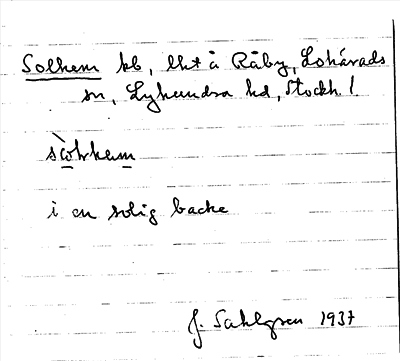 Solhem kb, lht å Råby, Lohärads
sn, Lyhundra hd, Stockh. l
i en solig backe
J. Sahlgren 1937